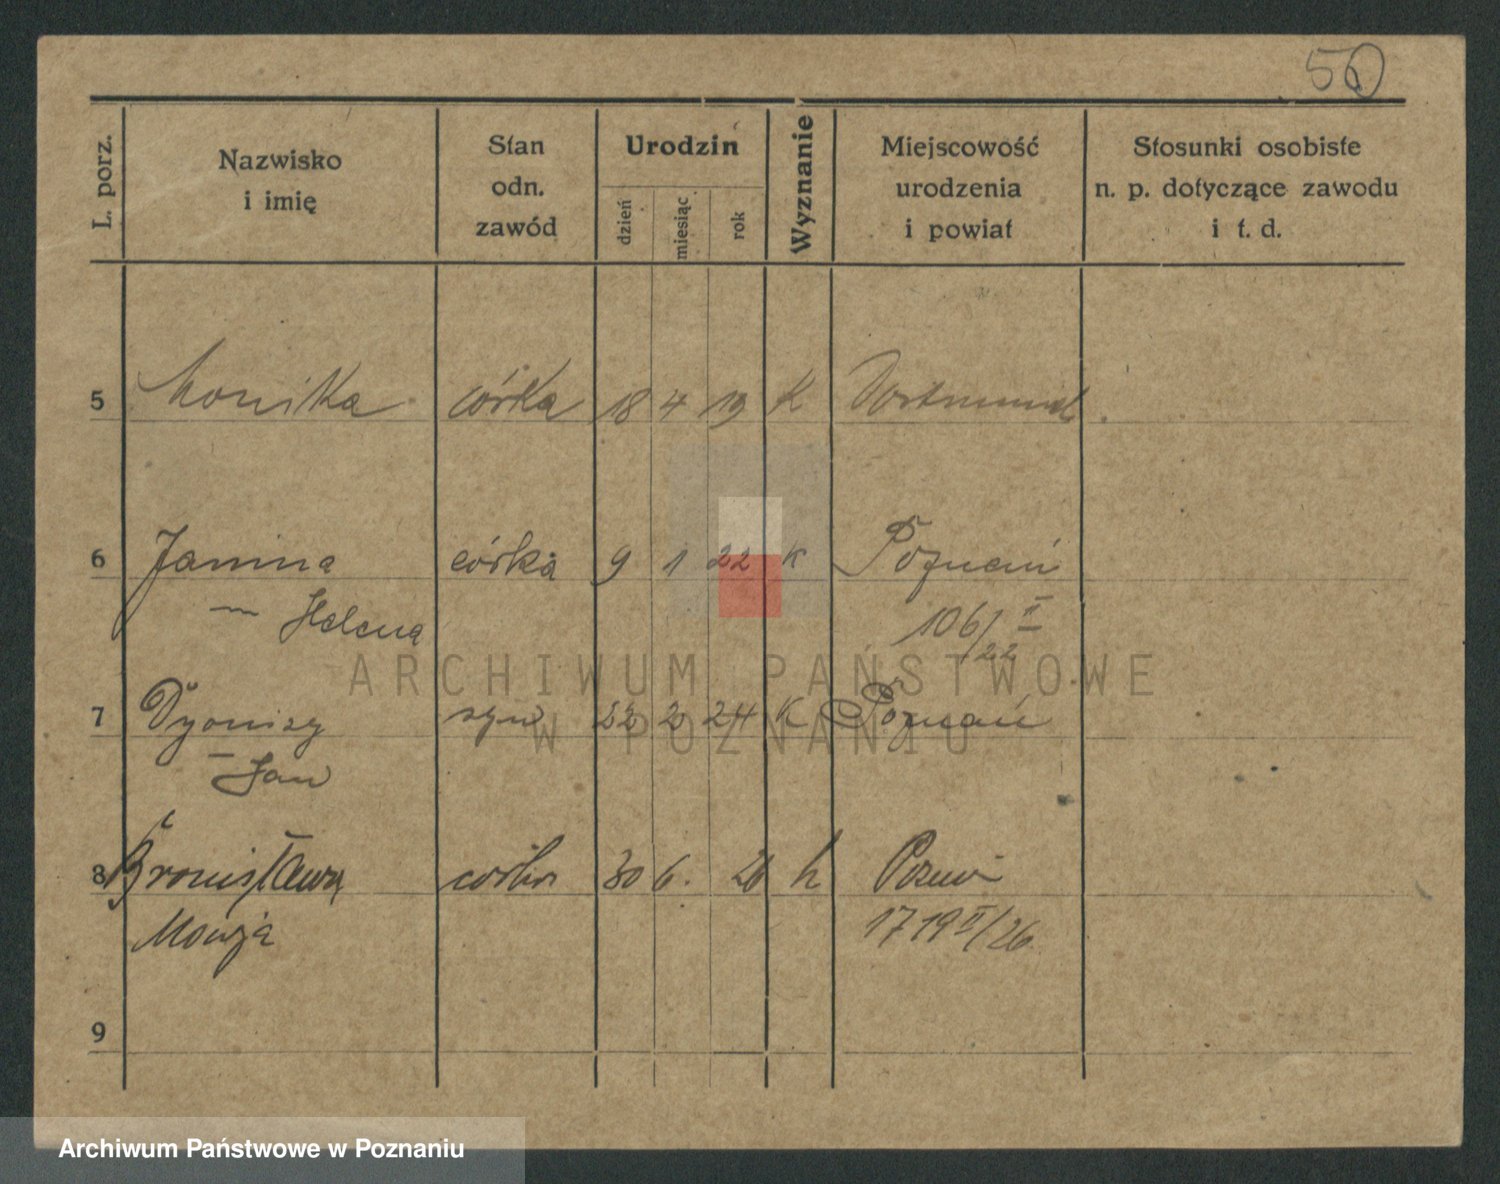 50
L. porz.
Nazwisko
i imię
Stan
odn.
zawód
Urodzin
dzień
miesiąc
rok
Wyznanie
Miejscowość
urodzenia
i powiat
Stosunki osobiste
n. p. dotyczące zawodu
i t. d.
5 Monika córka 18 4 19 K Dortmund
6 Janina córka 9 1 22 K Poznań
— Helena 106/II
22
7 Dyonizy syn 22 2 24 K Poznań
— Jan
8 Bronisława córka 30 6. 26 k
1719 II/26
9
ARCHIWUM PAŃSTWOWE
W POZNANIU
Archiwum Państwowe w Poznaniu